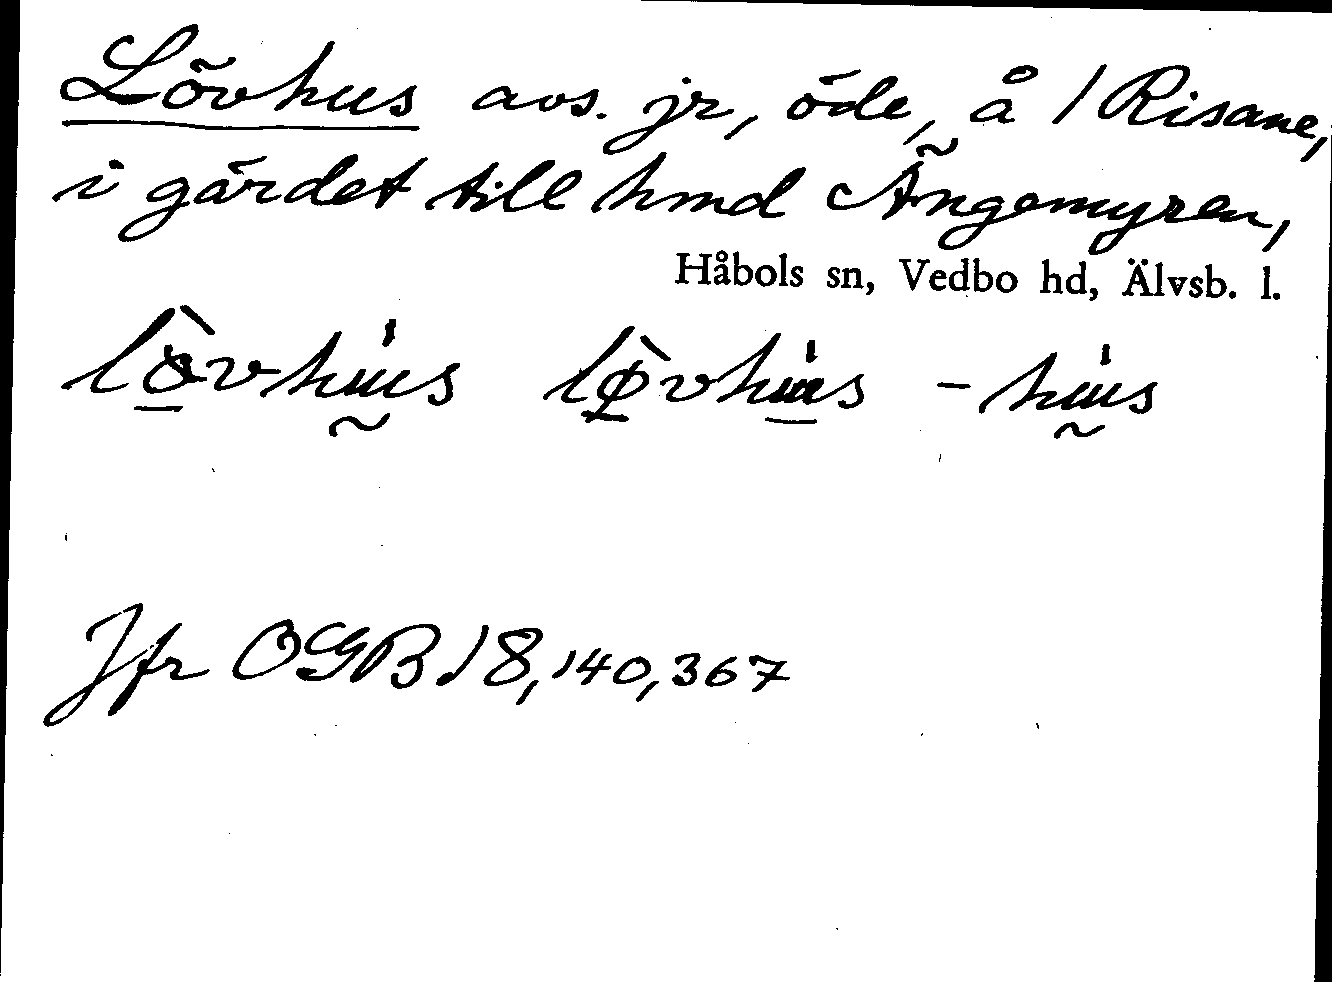 Lövhus avs. jr, öde, å 1 Risane,
i gärdet till hmd Ängemyren,
Håbols sn, Vedbo hd, Älvsb. l.
lòvhu̍s lø̀vhu̍s - hu̍s
Jfr OGB 18, 140, 367